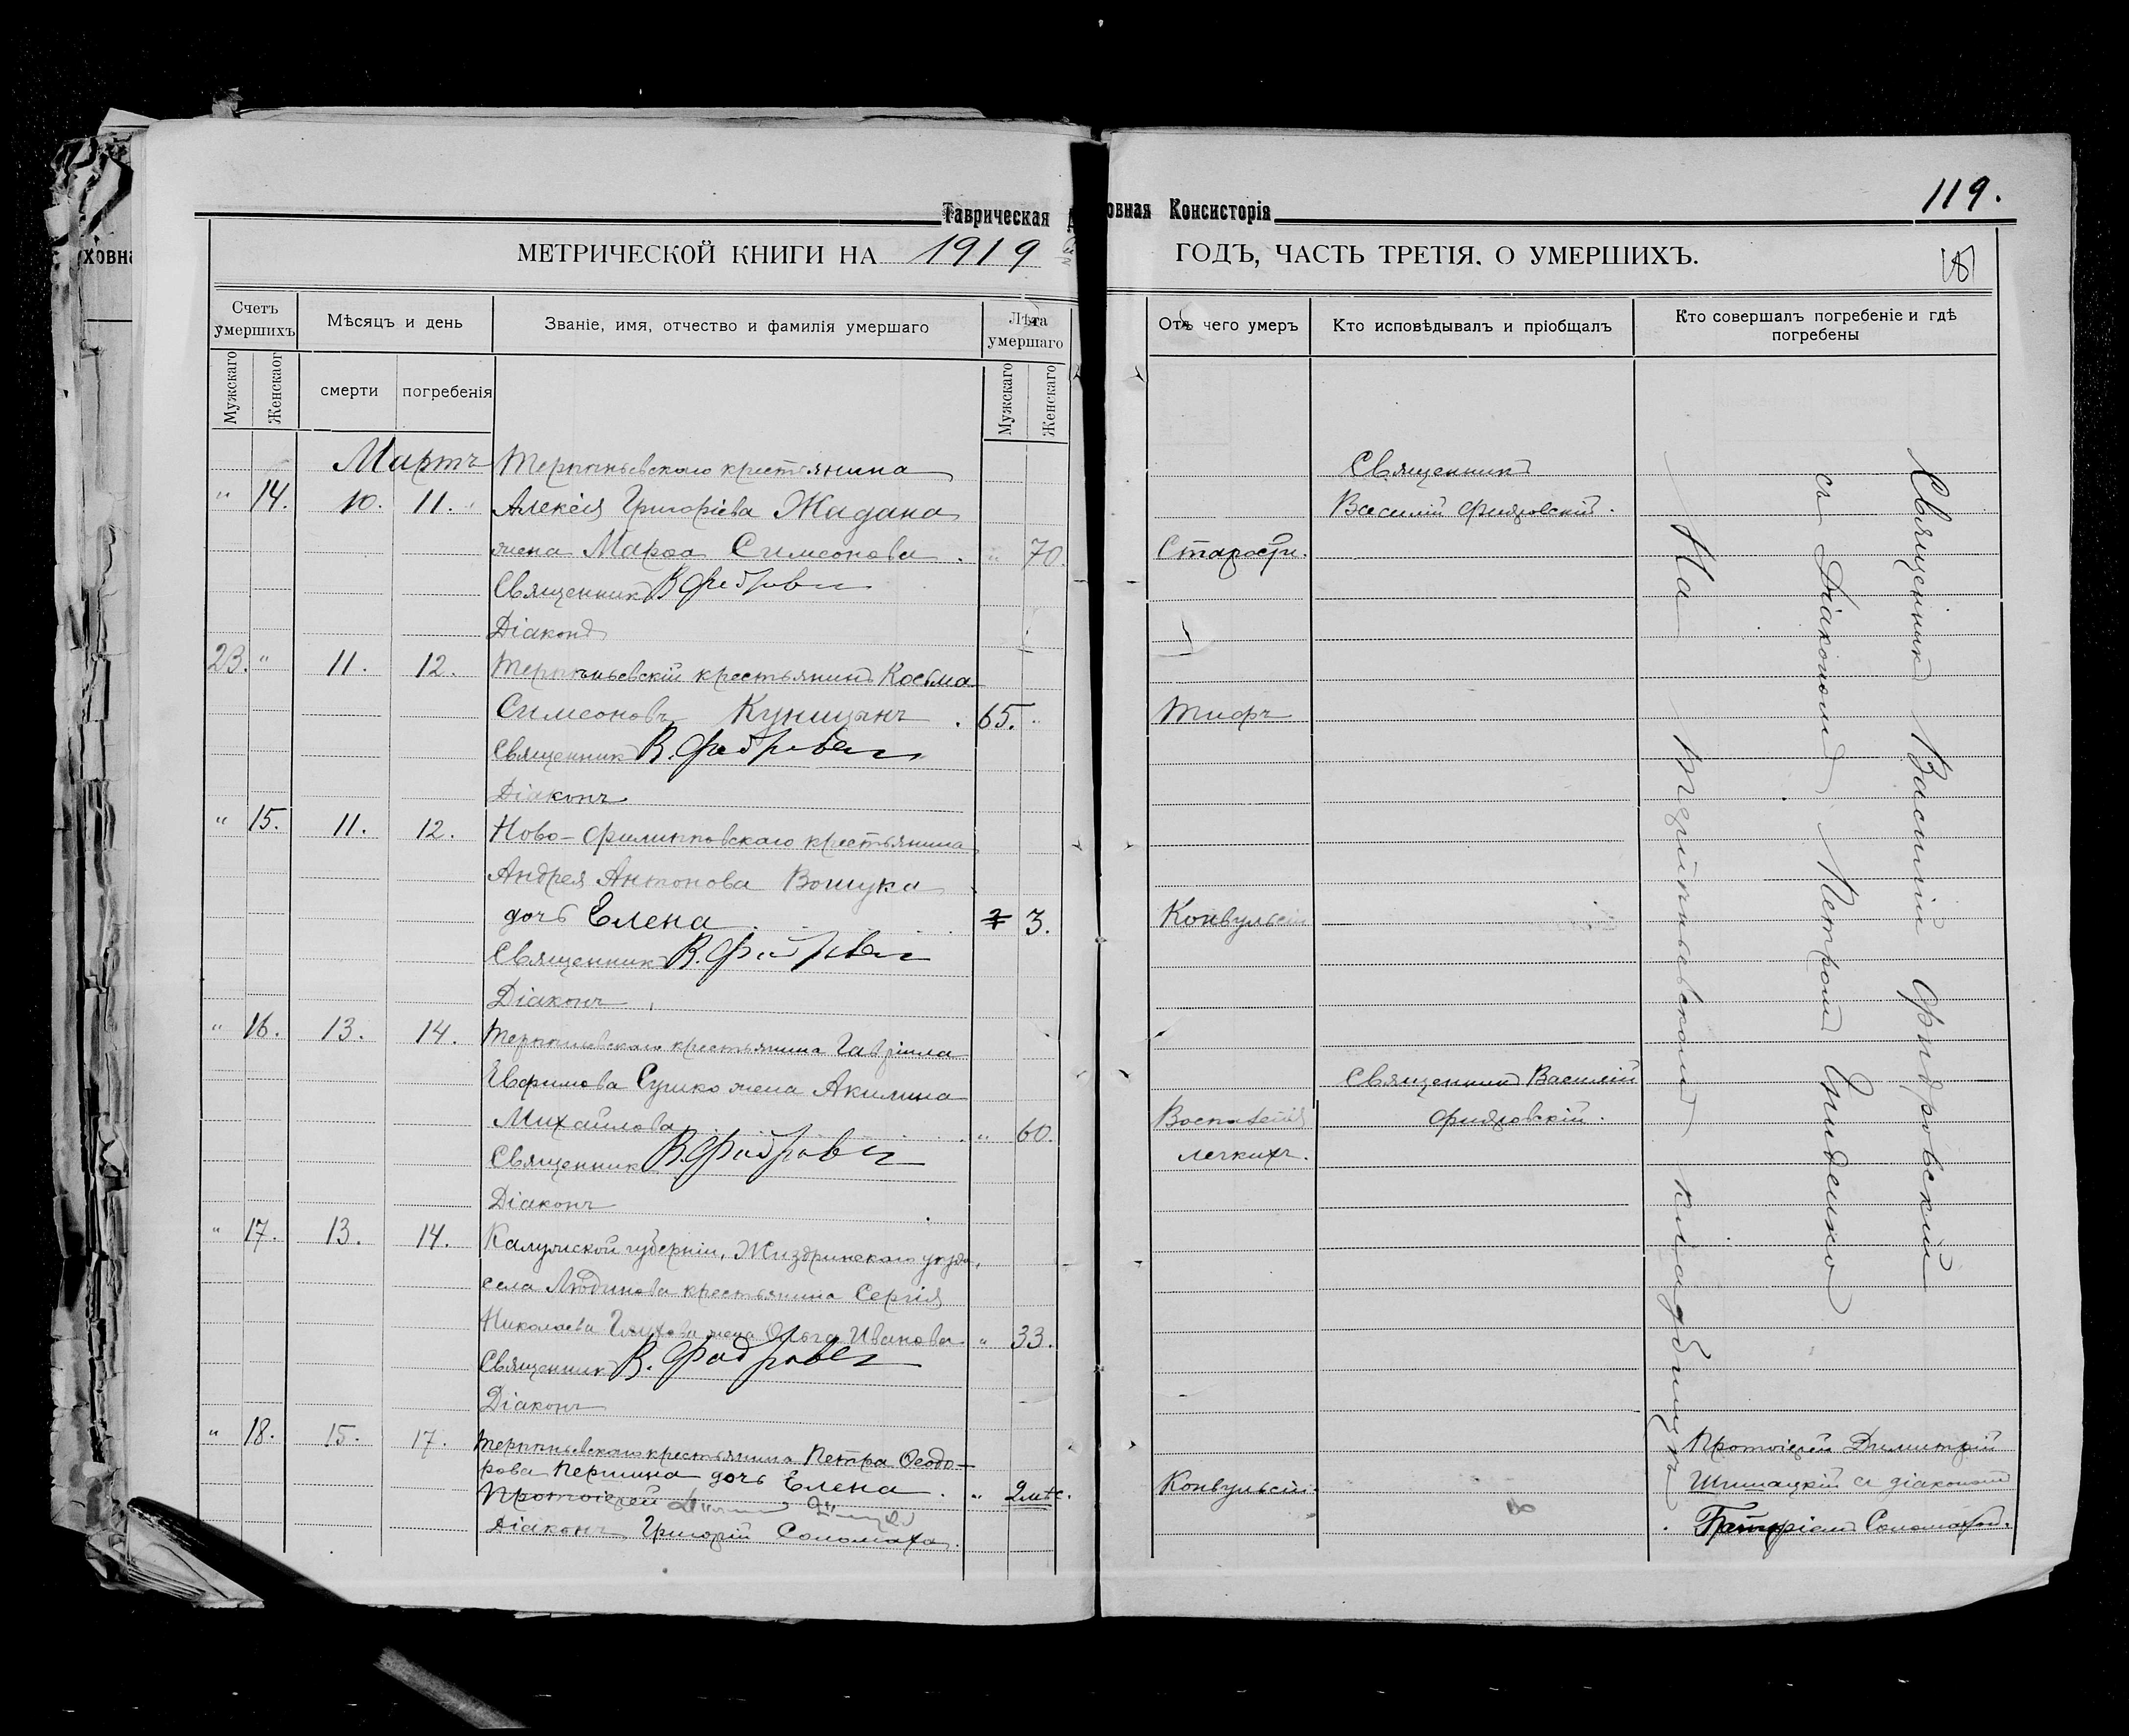 ховна
Таврическая Д
овная Консисторія
119.
МЕТРИЧЕСКОЙ КНИГИ НА 1919
ГОДЪ, ЧАСТЬ ТРЕТІЯ, О УМЕРШИХЪ.
Счетъ умершихъ
Мѣсяцъ и день
Званіе, имя, отчество и фамилія умершаго
Лѣта умершаго
Отъ чего умеръ
Кто исповѣдывалъ и пріобщалъ
Кто совершалъ погребеніе и гдѣ погребены
Мужскаго
Женскаго
смерти
погребенія
Мужскаго
Женскаго
Мартъ Терпѣньевскаго крестьянина
Священникъ
" 14. 10. 11. Алексія Григоріева Жадана
Василій Фидровскій.
жена Марѳа Симеонова . " 70.
Старости.
Священникъ В
Діаконъ
23. " 11. 12. Терпѣньевскій крестьянинъ Косьма
Симеоновъ Куницынъ . 65. "
Тифъ
Священникъ В.
Діаконъ
" 15. 11. 12. Ново-Филипповскаго крестьянина
Андрея Антонова
дочь Елена . 3.
Конвульсіи
Священникъ В.
Діаконъ
" 16. 13. 14. Терпѣньевскаго крестьянина Гавріила
Евфимова Сушко жена Акилина
Священникъ Василій
Михайлова . " 60.
Воспаленія
Фидровскій.
Священникъ В.
легкихъ.
Діаконъ
" 17. 13. 14. Калужской губерніи, Жиздринскаго уѣзда,
села Людинова крестьянина Сергія
Николаева Глухова жена Ольга Иванова " 33.
Священникъ В.
Діаконъ
" 18. 15. 17. Терпѣньевскаго крестьянина Петра Ѳеодо-
рова Першина дочь Елена . " 2 мѣс.
Конвульсіи.
Протоіерей
Діаконъ Григорій Соломаха.
Священникъ Василій Фидровскій
съ Діакономъ Петромъ
На Терпѣньевскомъ кладбищѣ
Протоіерей Димитрій
съ діакономъ
Григоріемъ Соломахой.